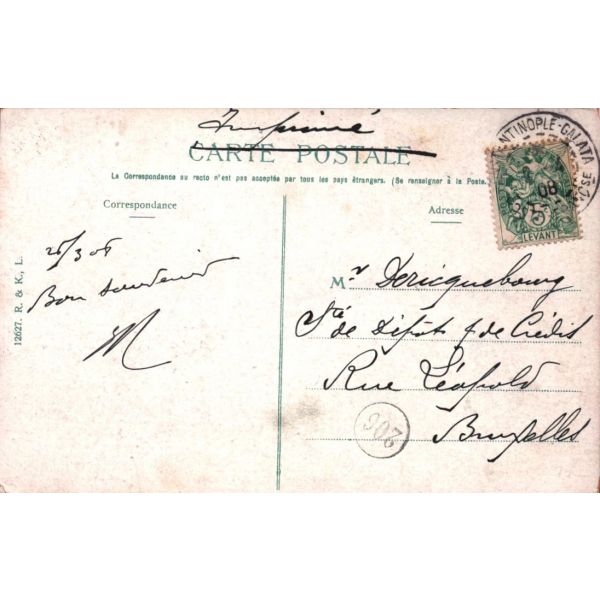 Imprimé
CARTE POSTALE
La Correspondance au recto n'est pas acceptée par tous les pays étrangers. (Se renseigner à la Poste.)
Correspondance
Adresse
NTINOPLE-GALATA
08
LEVANT
25/3 08
Bon souvenir
M
Mr Dericquebourg
Sté de Dépôts & de Crédit
Rue Léopold
Bruxelles
206
12627. R. & K., L.